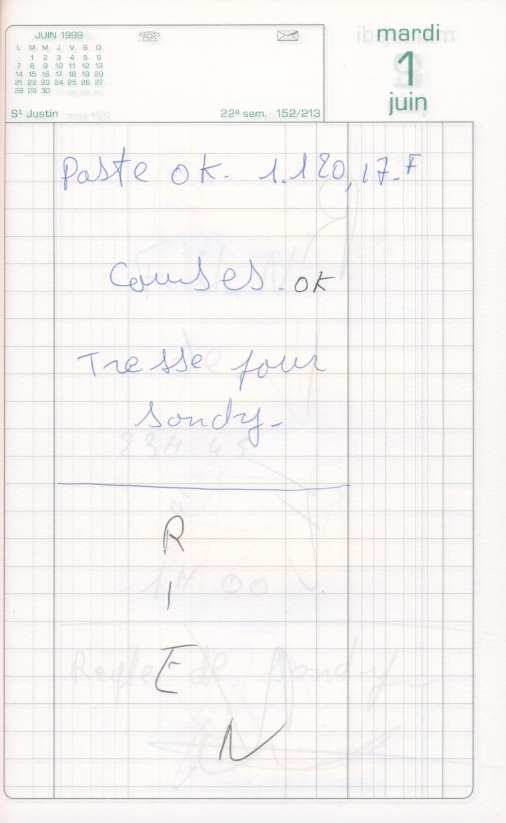 JUIN 1999
L M M J V S D
1 2 3 4 5 6
7 8 9 10 11 12 13
14 15 16 17 18 19 20
21 22 23 24 25 26 27
28 29 30
St Justin
22e sem. 152/213
mardi
1
juin
Poste ok. 1.120,17.F
Courses. OK
Tresse pour
sondy-
R
I
E
N